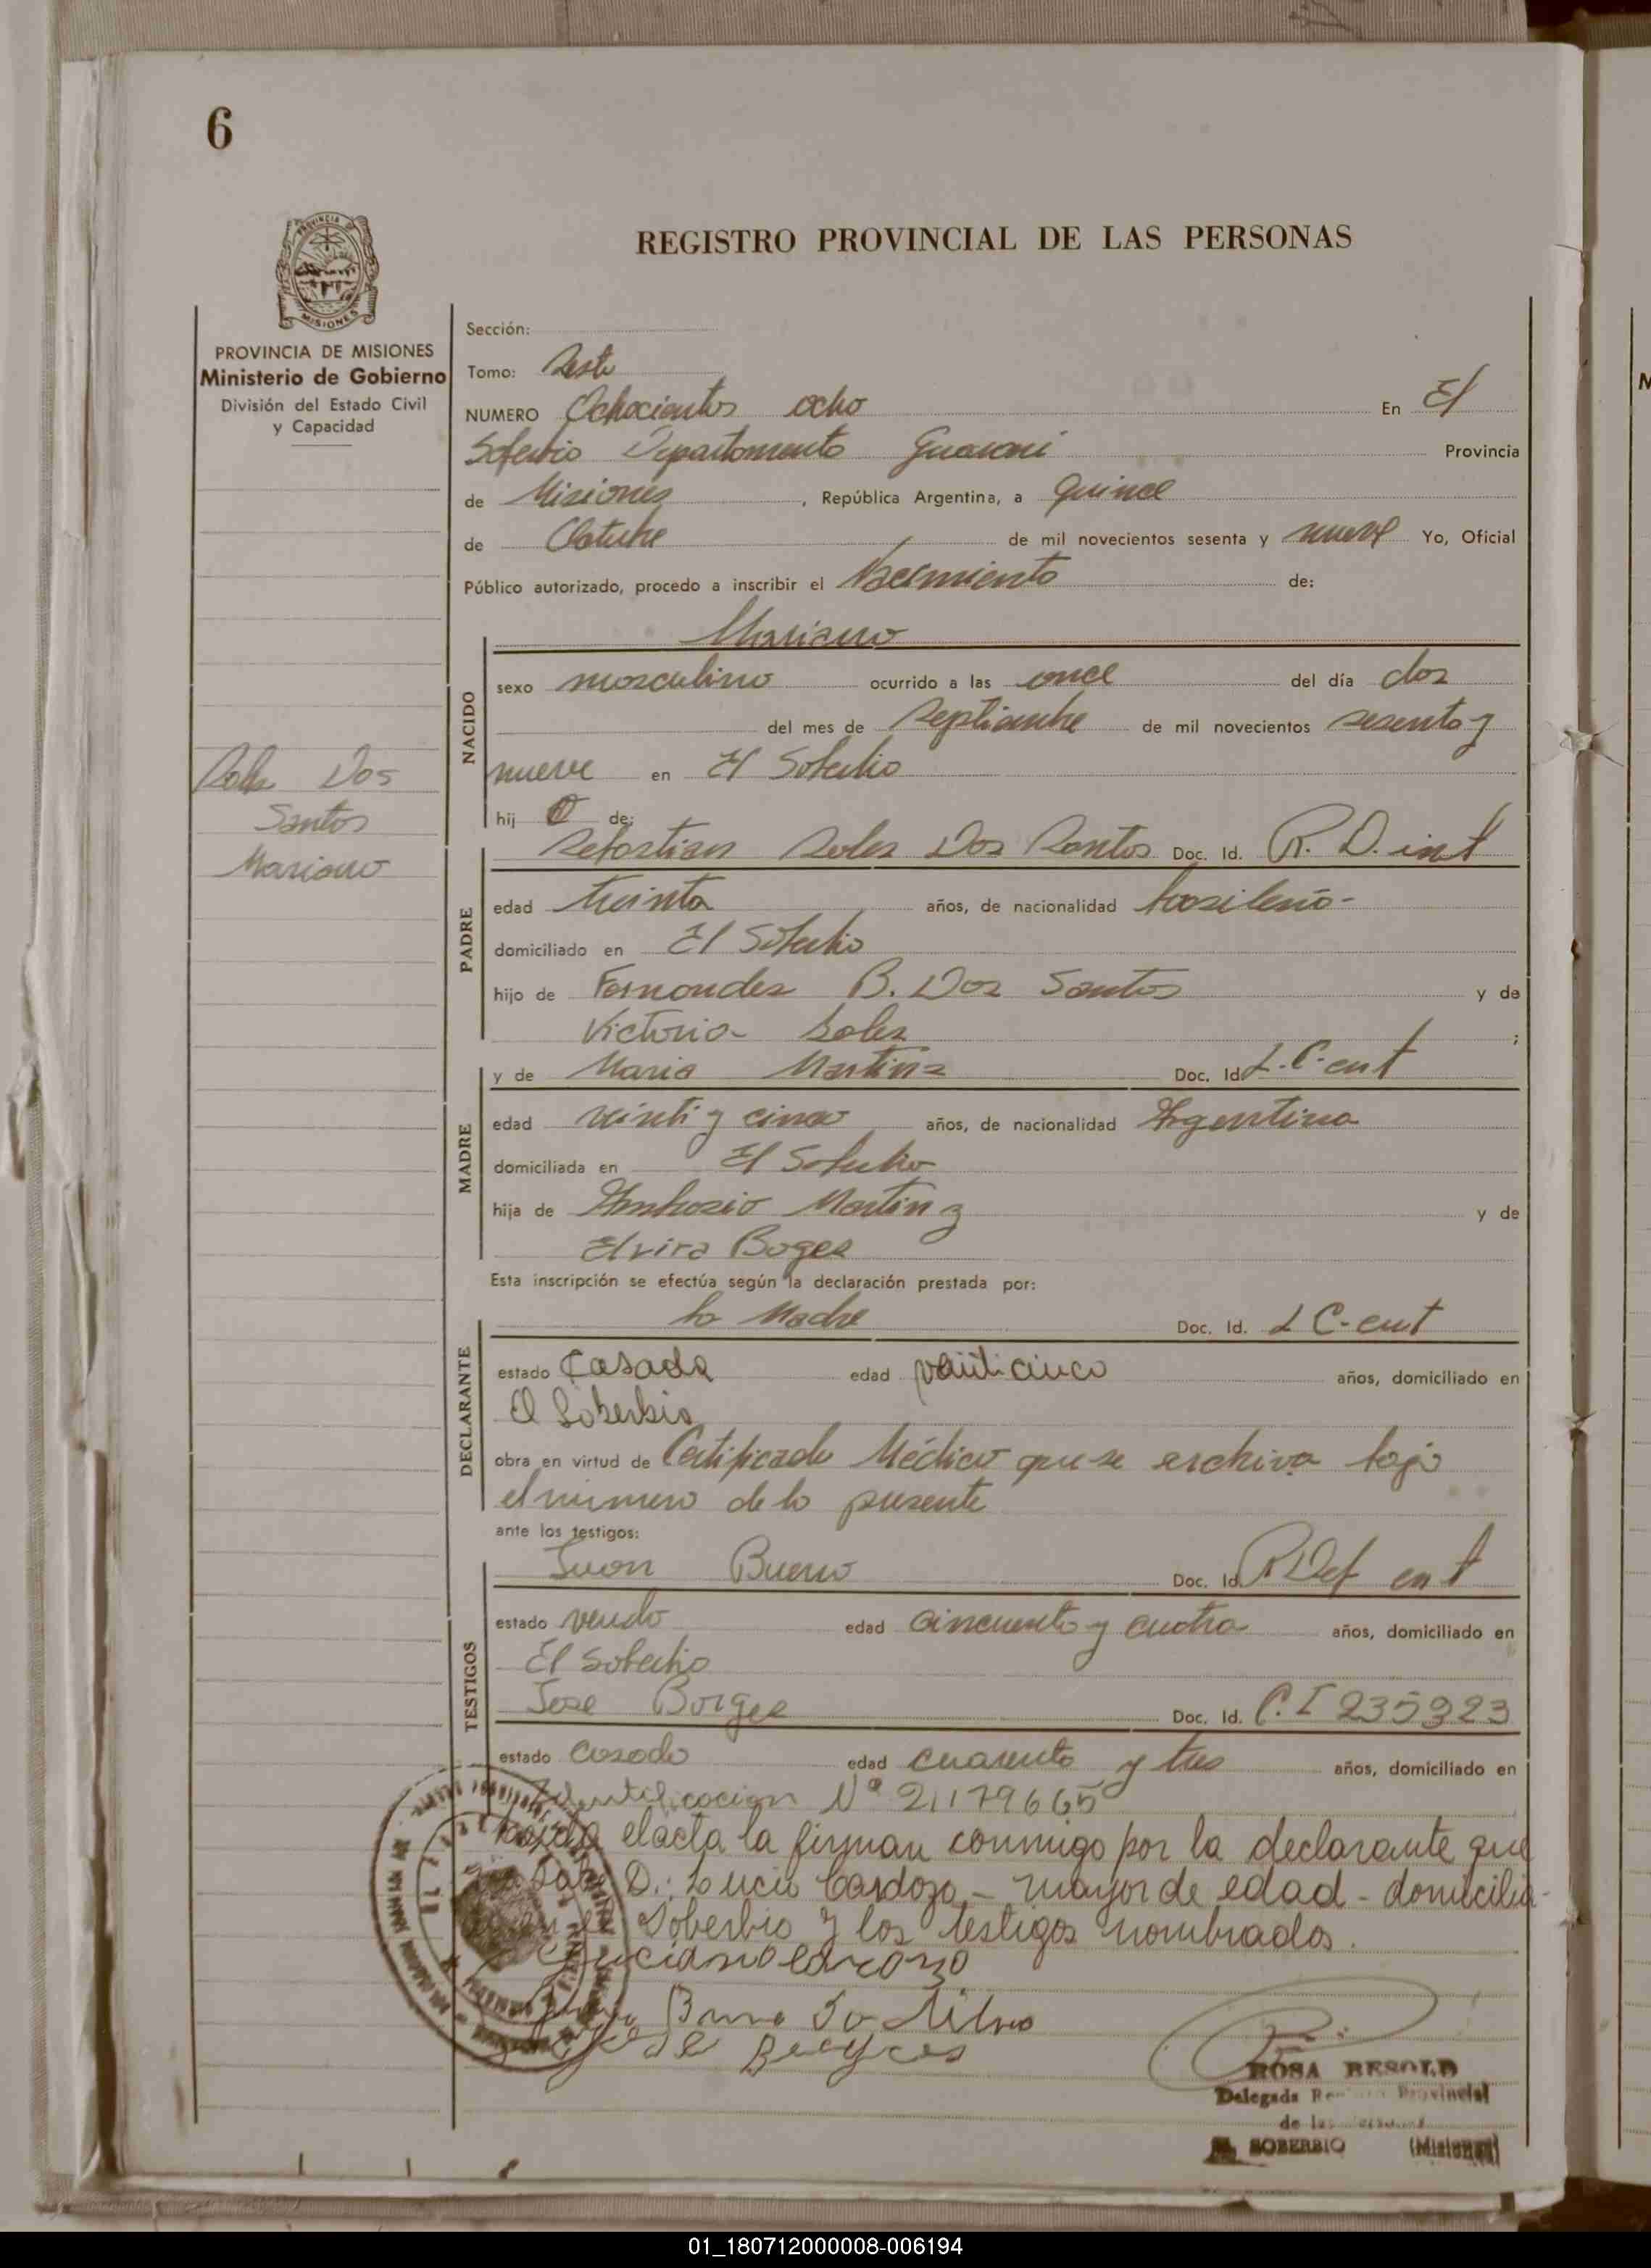 6
REGISTRO PROVINCIAL DE LAS PERSONAS
PROVINCIA DE
MISIONES
PROVINCIA DE MISIONES
Ministerio de Gobierno
División del Estado Civil
y Capacidad
Dos
Santos
Mariano
Sección:
Tomo: Sesto
NUMERO Ochocientos ocho En El
Soberbio Departamento Guarani Provincia
de Misiones, República Argentina, a Quince
de Octubre de mil novecientos sesenta y nueve Yo, Oficial
Público autorizado, procedo a inscribir el Nacimiento de:
Mariano
NACIDO
sexo masculino ocurrido a las once del día dos
del mes de Septiembre de mil novecientos sesenta y
nueve en El Soberbio
hij o de:
Sebastian Dos Santos Doc. Id.
PADRE
edad treinta años, de nacionalidad brasileño-
domiciliado en El Soberbio
hijo de Fernandes B. Dos Santos y de
Victoria ;
y de Maria Doc. Id.
MADRE
edad veinti y cinco años, de nacionalidad Argentina
domiciliada en El Soberbio
hija de Ambrosio y de
Elvira
Esta inscripción se efectúa según la declaración prestada por:
la Madre Doc. Id.
DECLARANTE
estado Casada edad veinticinco años, domiciliado en
El Soberbio
obra en virtud de Certificado Médico que se archiva bajo
el numero de la presente
ante los testigos:
Juan Bueno Doc. Id.
TESTIGOS
estado edad cincuenta y cuatro años, domiciliado en
El Soberbio
Jose Borges Doc. Id. C. I 235923
estado casado edad cuarenta y tres años, domiciliado en
Identificacion Nº 21179665
el acta la firman conmigo por la declarante que
D.: Lucio Cardozo - mayor de edad - domicilia-
Soberbio y los testigos nombrados.
ROSA RESOLD
Delegada Provincial
de las
EL SOBERBIO (Misiones)
01_180712000008-006194